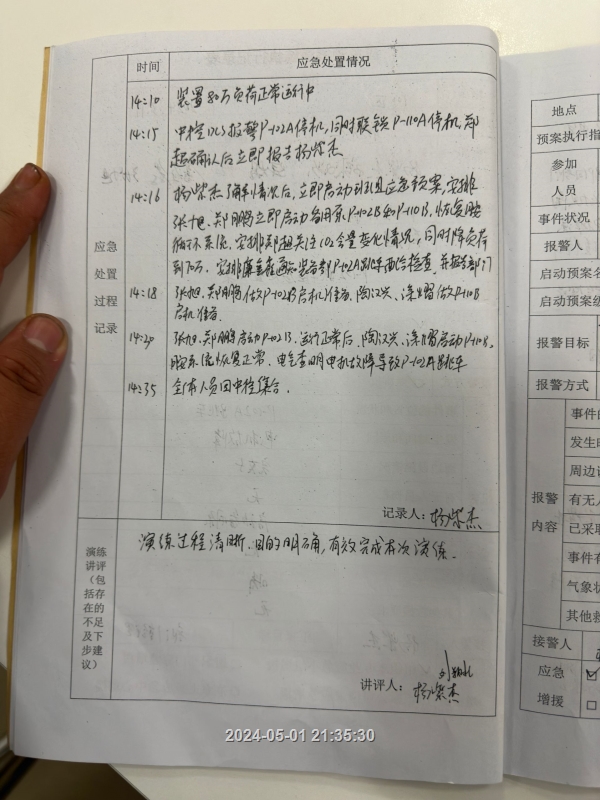 时间 应急处置情况
14:10 装置80万负荷正常运行中
14:15 中控DCS报警P-102A停机,同时联锁P-110A停机,郑
超确认后立即报告杨紫杰
14:16 杨紫杰了解情况后,立即启动到孔应急预案,安排
张旭、郑鹏立即启动备用泵P-102B和P-110B,恢复脱
循环系统,安排郑超关注CO2含量变化情况,同时降负荷
到70万.安排 通知 P-102A跳车 检查,并报 部门
14:18 张旭、郑鹏做P-102B启机准备,陶汉兴、涂 做P-110B
启机准备
14:20 张旭、郑鹏启动P-102B,运行正常后,陶汉兴、涂 启动P-110B,
脱 系统恢复正常.电气查明电机故障导致P-102A跳车
14:35 全体人员回中控集合.
应急
处置
过程
记录
记录人:杨紫杰
演练过程清晰.目的明确,有效完成本次演练.
演练
讲评
(包
括存
在的
不足
及下
步建
议)
讲评人: 杨紫杰
地点
预案执行指
参加
人员
事件状况
报警人
启动预案名
启动预案级
报警目标
报警方式
报警
内容
事件的
发生时
周边
有无人
已采取
事件有
气象状
其他救
接警人
应急
增援
2024-05-01 21:35:30